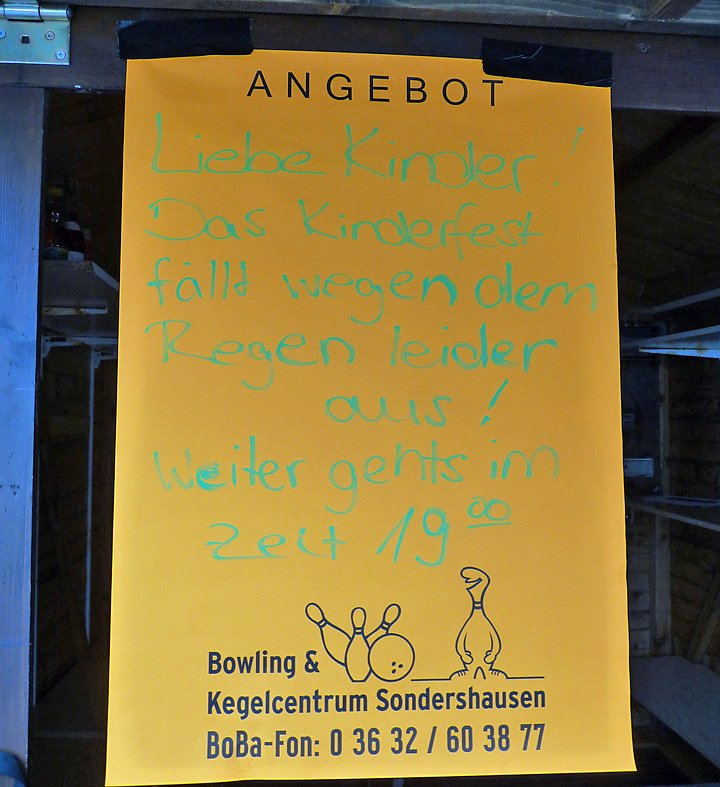 ANGEBOT
Liebe Kinder!
Das Kinderfest
fällt wegen dem
Regen leider
aus!
Weiter gehts im
zelt 19⁰⁰
Bowling &
Kegelcentrum Sondershausen
BoBa-Fon: 0 36 32 / 60 38 77